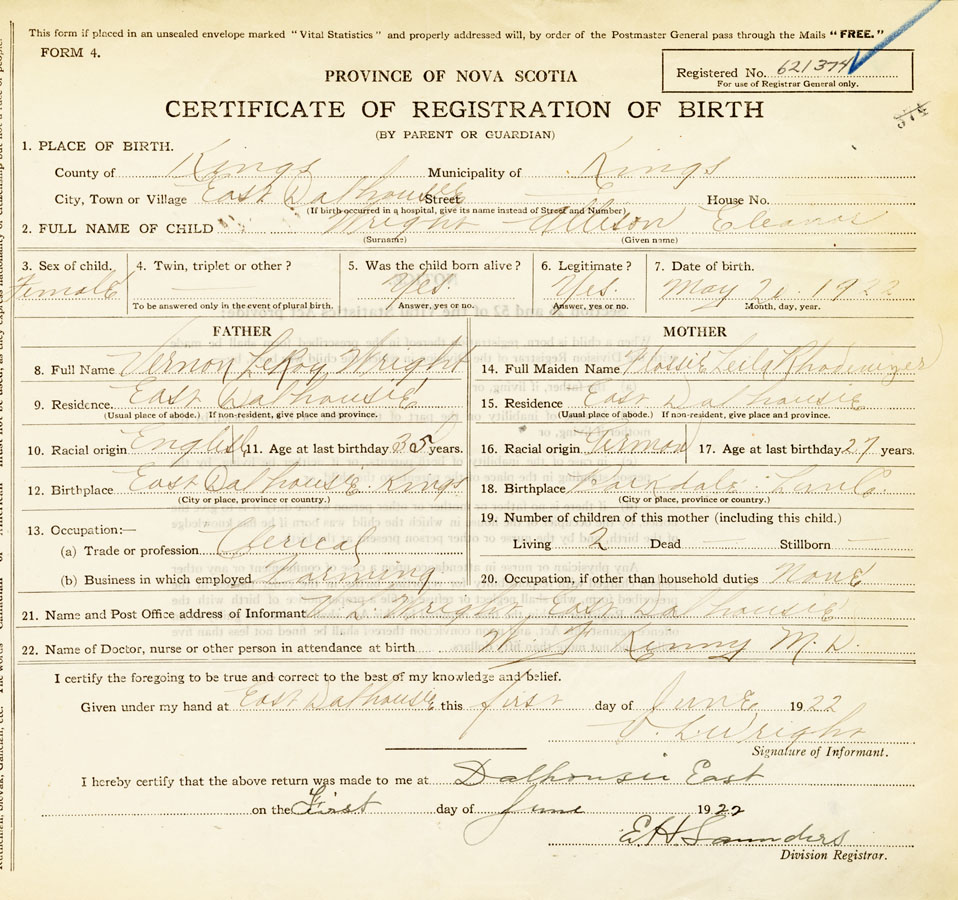 This form if placed in an unsealed envelope marked "Vital Statistics" and properly addressed will, by order of the Postmaster General pass through the Mails "FREE."
FORM 4.
Registered No. 621374
For use of Registrar General only.
PROVINCE OF NOVA SCOTIA
CERTIFICATE OF REGISTRATION OF BIRTH
374
(BY PARENT OR GUARDIAN)
1. PLACE OF BIRTH.
County of Kings Municipality of Kings
City, Town or Village East Dalhousie Street House No.
(If birth occurred in a hospital, give its name instead of Street and Number)
2. FULL NAME OF CHILD Wright Allison Eleanor
(Surname) (Given name)
3. Sex of child. 4. Twin, triplet or other? 5. Was the child born alive? 6. Legitimate? 7. Date of birth.
Female Yes. Yes. May 20. 1922
To be answered only in the event of plural birth. Answer, yes or no. Answer, yes or no. Month, day, year.
FATHER MOTHER
8. Full Name Vernon LeRoy Wright 14. Full Maiden Name Flossie Leila Rhodenizer
9. Residence. East Dalhousie 15. Residence East Dalhousie
(Usual place of abode.) If non-resident, give place and province. (Usual place of abode.) If non-resident, give place and province.
10. Racial origin English 11. Age at last birthday 35 years. 16. Racial origin German 17. Age at last birthday 27 years.
12. Birthplace East Dalhousie Kings 18. Birthplace Parkdale
(City or place, province or country.) (City or place, province or country.)
13. Occupation:— 19. Number of children of this mother (including this child.)
(a) Trade or profession Clerical Living 2 Dead Stillborn
(b) Business in which employed 20. Occupation, if other than household duties None
21. Name and Post Office address of Informant V L Wright East Dalhousie
22. Name of Doctor, nurse or other person in attendance at birth W. F Kenny M. D.
I certify the foregoing to be true and correct to the best of my knowledge and belief.
Given under my hand at East Dalhousie this first day of June 1922
V. L Wright
Signature of Informant.
I hereby certify that the above return was made to me at Dalhousie East
on the First day of June 1922
E H Saunders
Division Registrar.